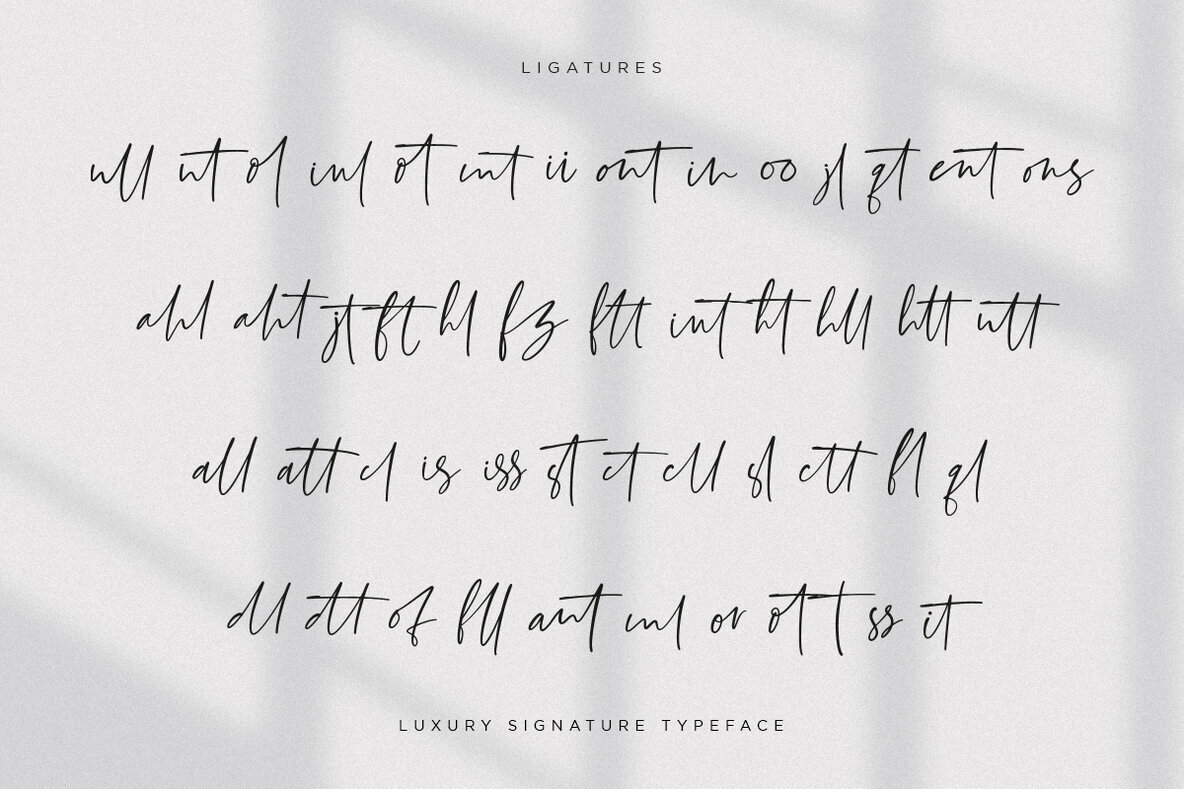 LIGATURES
ull ut ol inl ot mt ii ont in oo jl qt ent ons
ahl aht jt ft hl fz ftt int ht hll htt utt
all att cl is iss st ct cll sl ctt fl ql
dl dtt of fll ant ml or ott ss it
LUXURY SIGNATURE TYPEFACE